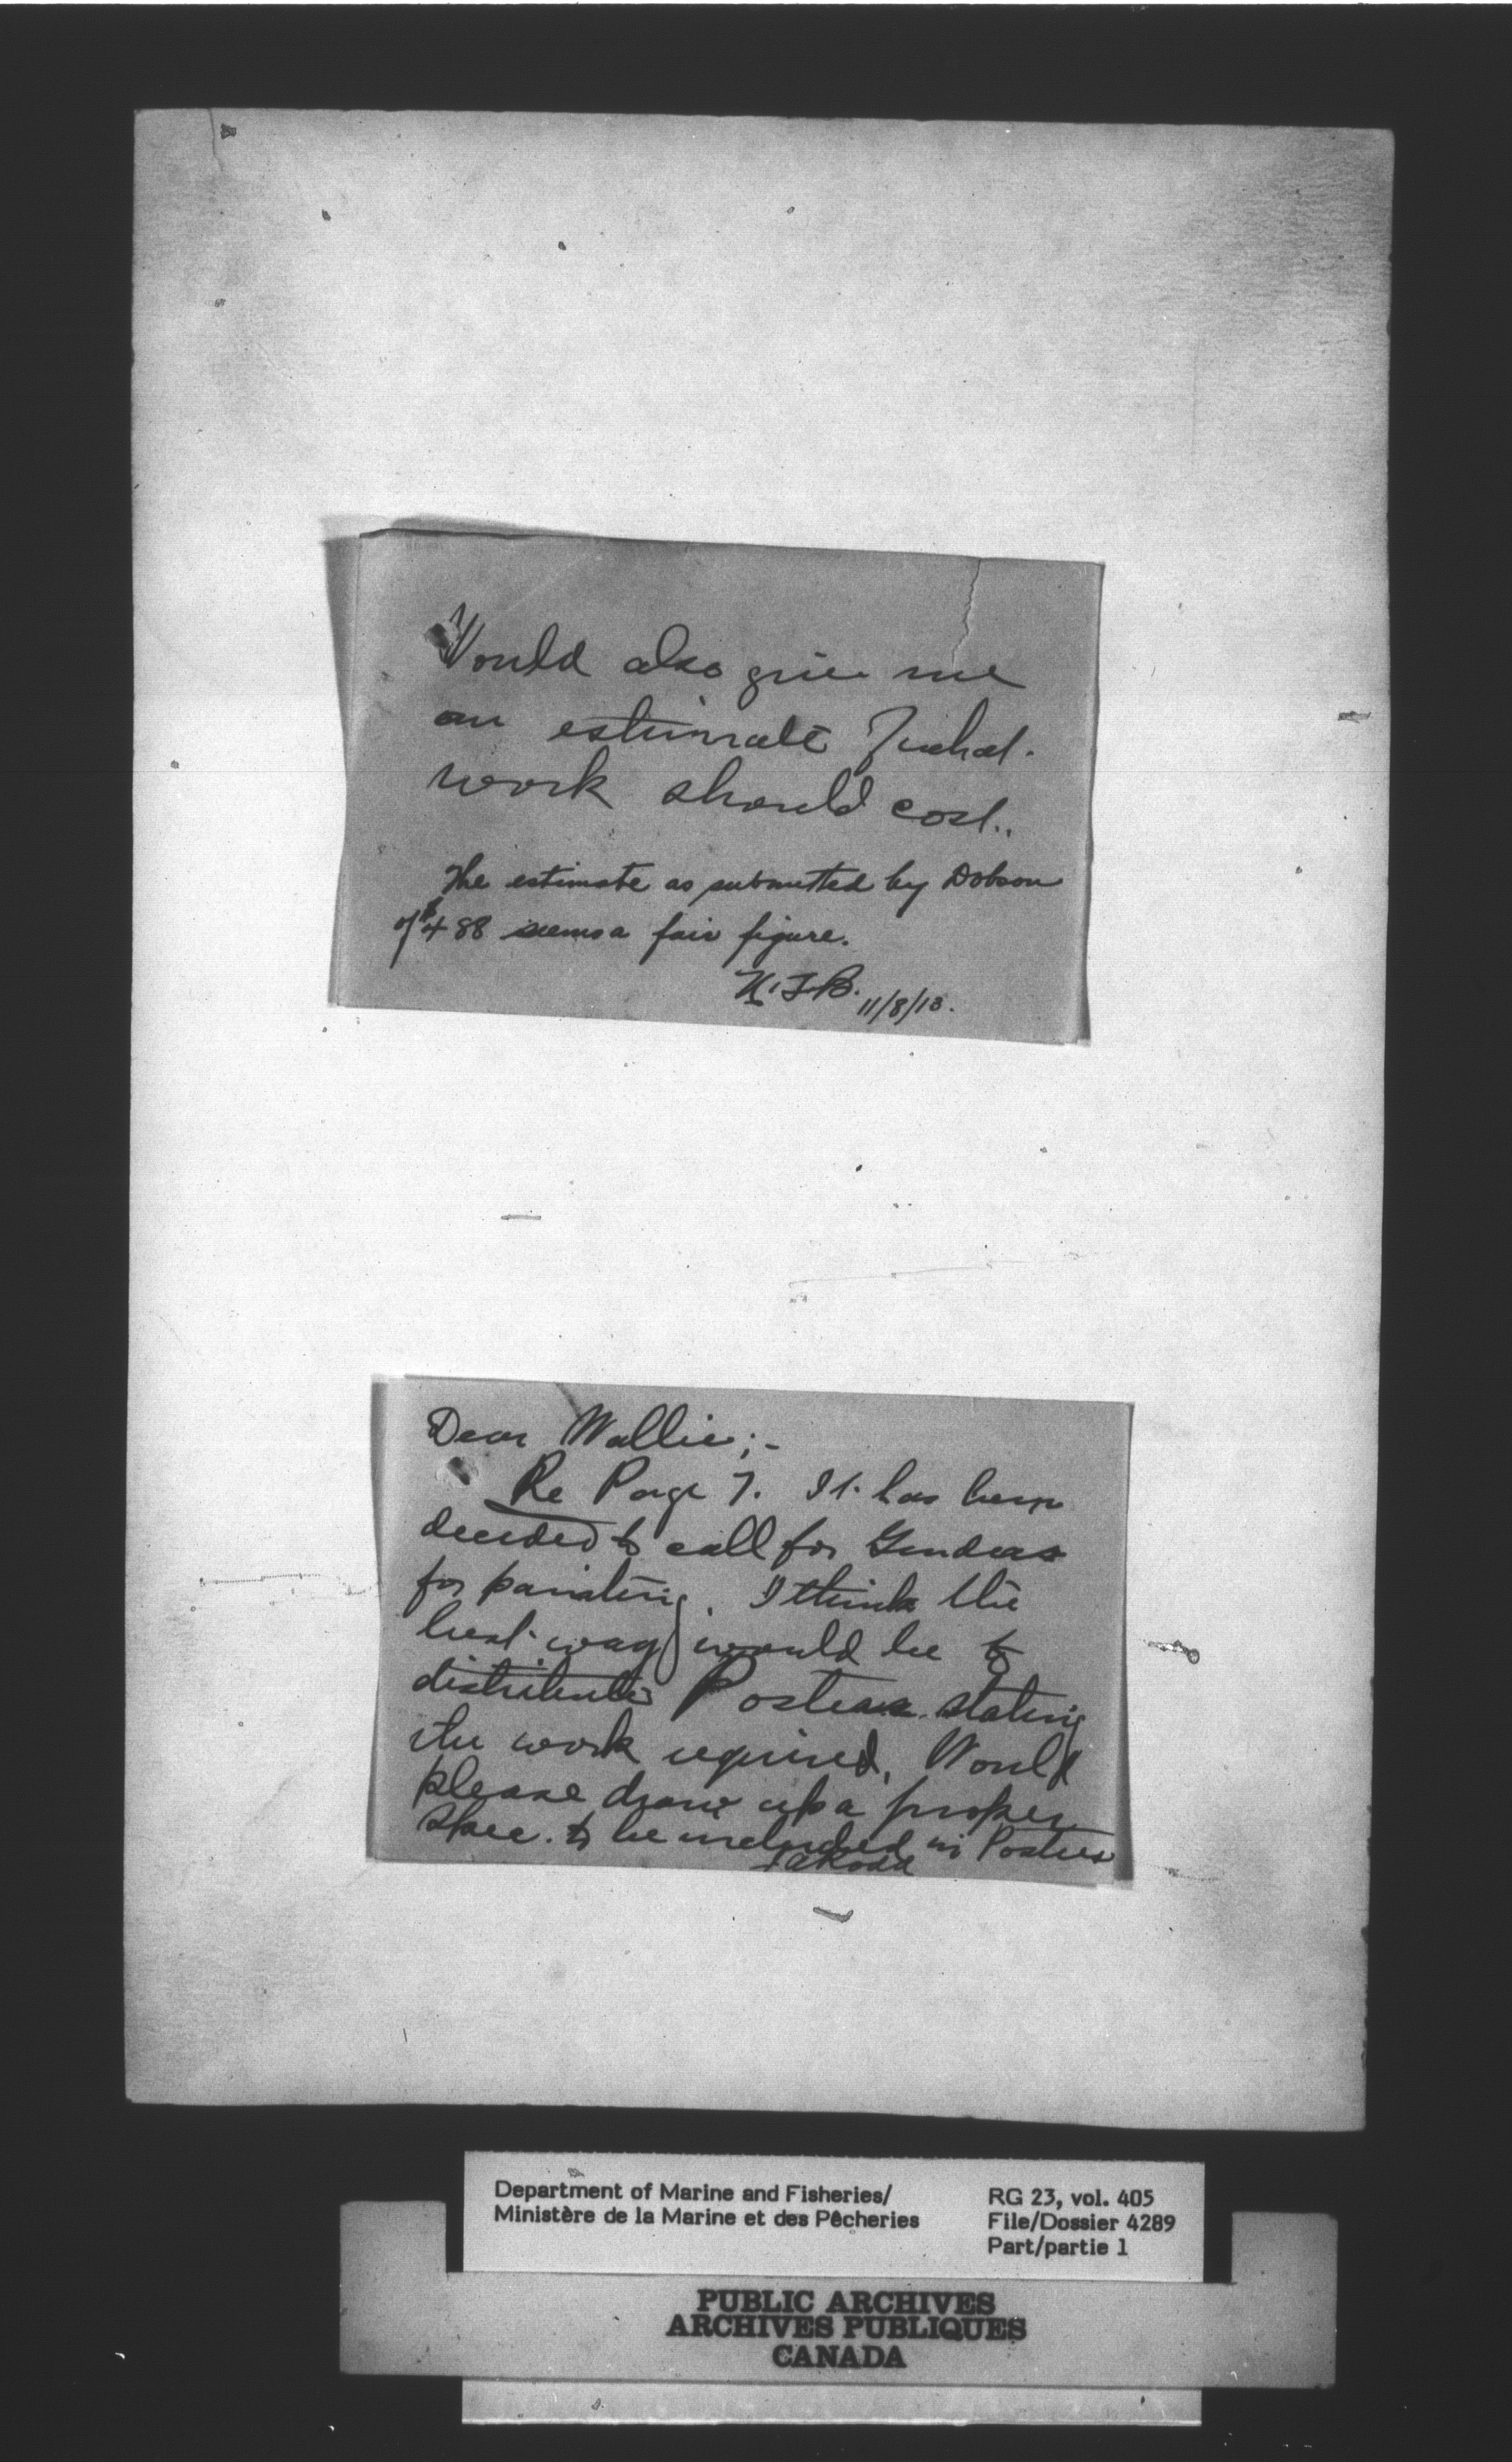 Would also give me
an estimate of what
work should cost.
The estimate as submitted by Dobson
of $488 seems a fair figure.
11/8/13.
Dear Wallie;-
Re Page 7. It has been
decided to call for Tenders
for painting. I think the
best way would be to
distribute Posters stating
the work required. Would
please draw up a proper
spec. to be included in Posters
Department of Marine and Fisheries/
Ministère de la Marine et des Pêcheries
RG 23, vol. 405
File/Dossier 4289
Part/partie 1
PUBLIC ARCHIVES
ARCHIVES PUBLIQUES
CANADA